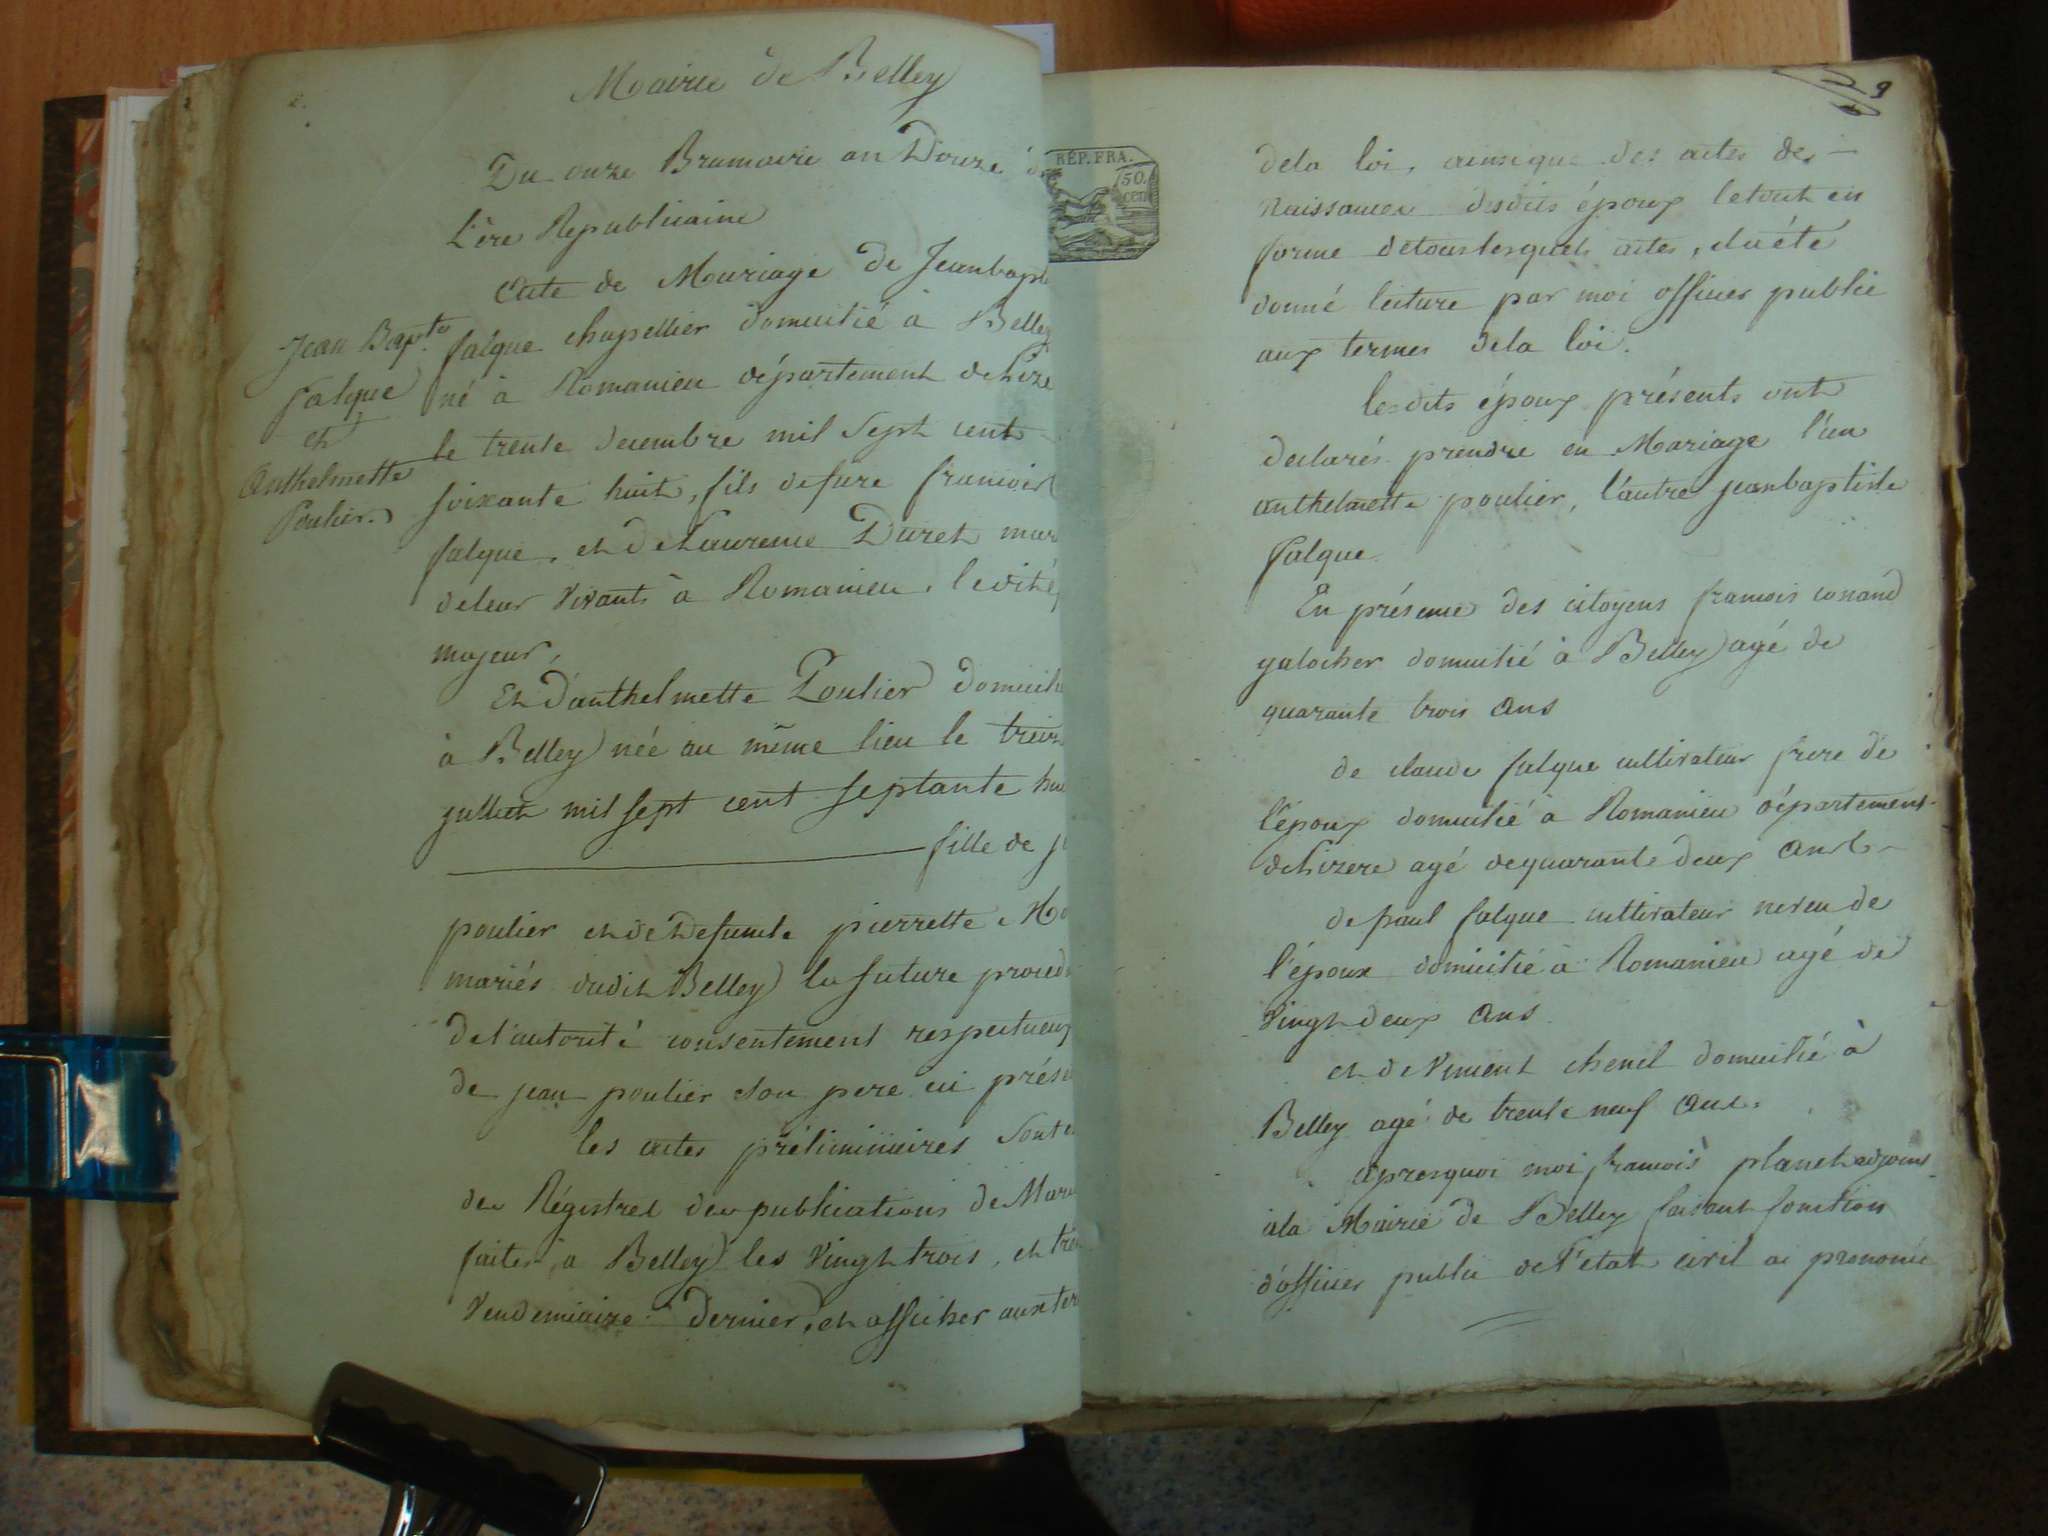 Mairie de Belley
Du onze Brumaire an Douze de
L'ère Republicaine
Acte de Mariage de Jeanbapt
Jean Bapte
falque
et
Anthelmette
Poulier.
falque chapellier domicilié à Belley
né à Romanieu département delizere
le trente decembre mil sept cent
soixante huit, fils defure francois
falque, et de Laurence Duret mar
deleur vivants à Romanieu, ledit
majeur,
Et d'anthelmette Poulier domicili
à Belley née au même lieu le treize
juillet mil sept cent septante hui
fille de j
poulier et de Defunte pierrette Mo
mariés dudit Belley la future procéd
de l'autorité consentement respectueux
de jean poulier son pere ici prése
les actes préliminaires sont
des Régistres des publications de Maria
faites à Belley les vingt trois, et tre
Vendemiaire dernier, et afficher aux ter
REP. FRA.
50.
cen
9
dela loi, ainsi que des actes de
Naissances desdits époux letout en
forme detous lesquels actes, il a été
donné lecture par moi officier public
aux termes dela loi.
lesdits époux présents ont
declarés prendre en Mariage l'un
anthelmette poulier, l'autre jeanbaptiste
falque.
En présence des citoyens francois conand
galocher domicilié à Belley agé de
quarante trois ans
de claude falque cultivateur frere de
l'époux domicilié à Romanieu département
delizere agé dequarante deux ans
de paul falque cultivateur neveu de
l'époux domicilié à Romanieu agé de
vingt deux ans.
et de vincent chenel domicilié à
Belley agé de trente neuf ans.
apresquoi moi francois planet adjoint
ala Mairie de Belley faisant fonction
d'officier public de l'etat civil ai prononcé